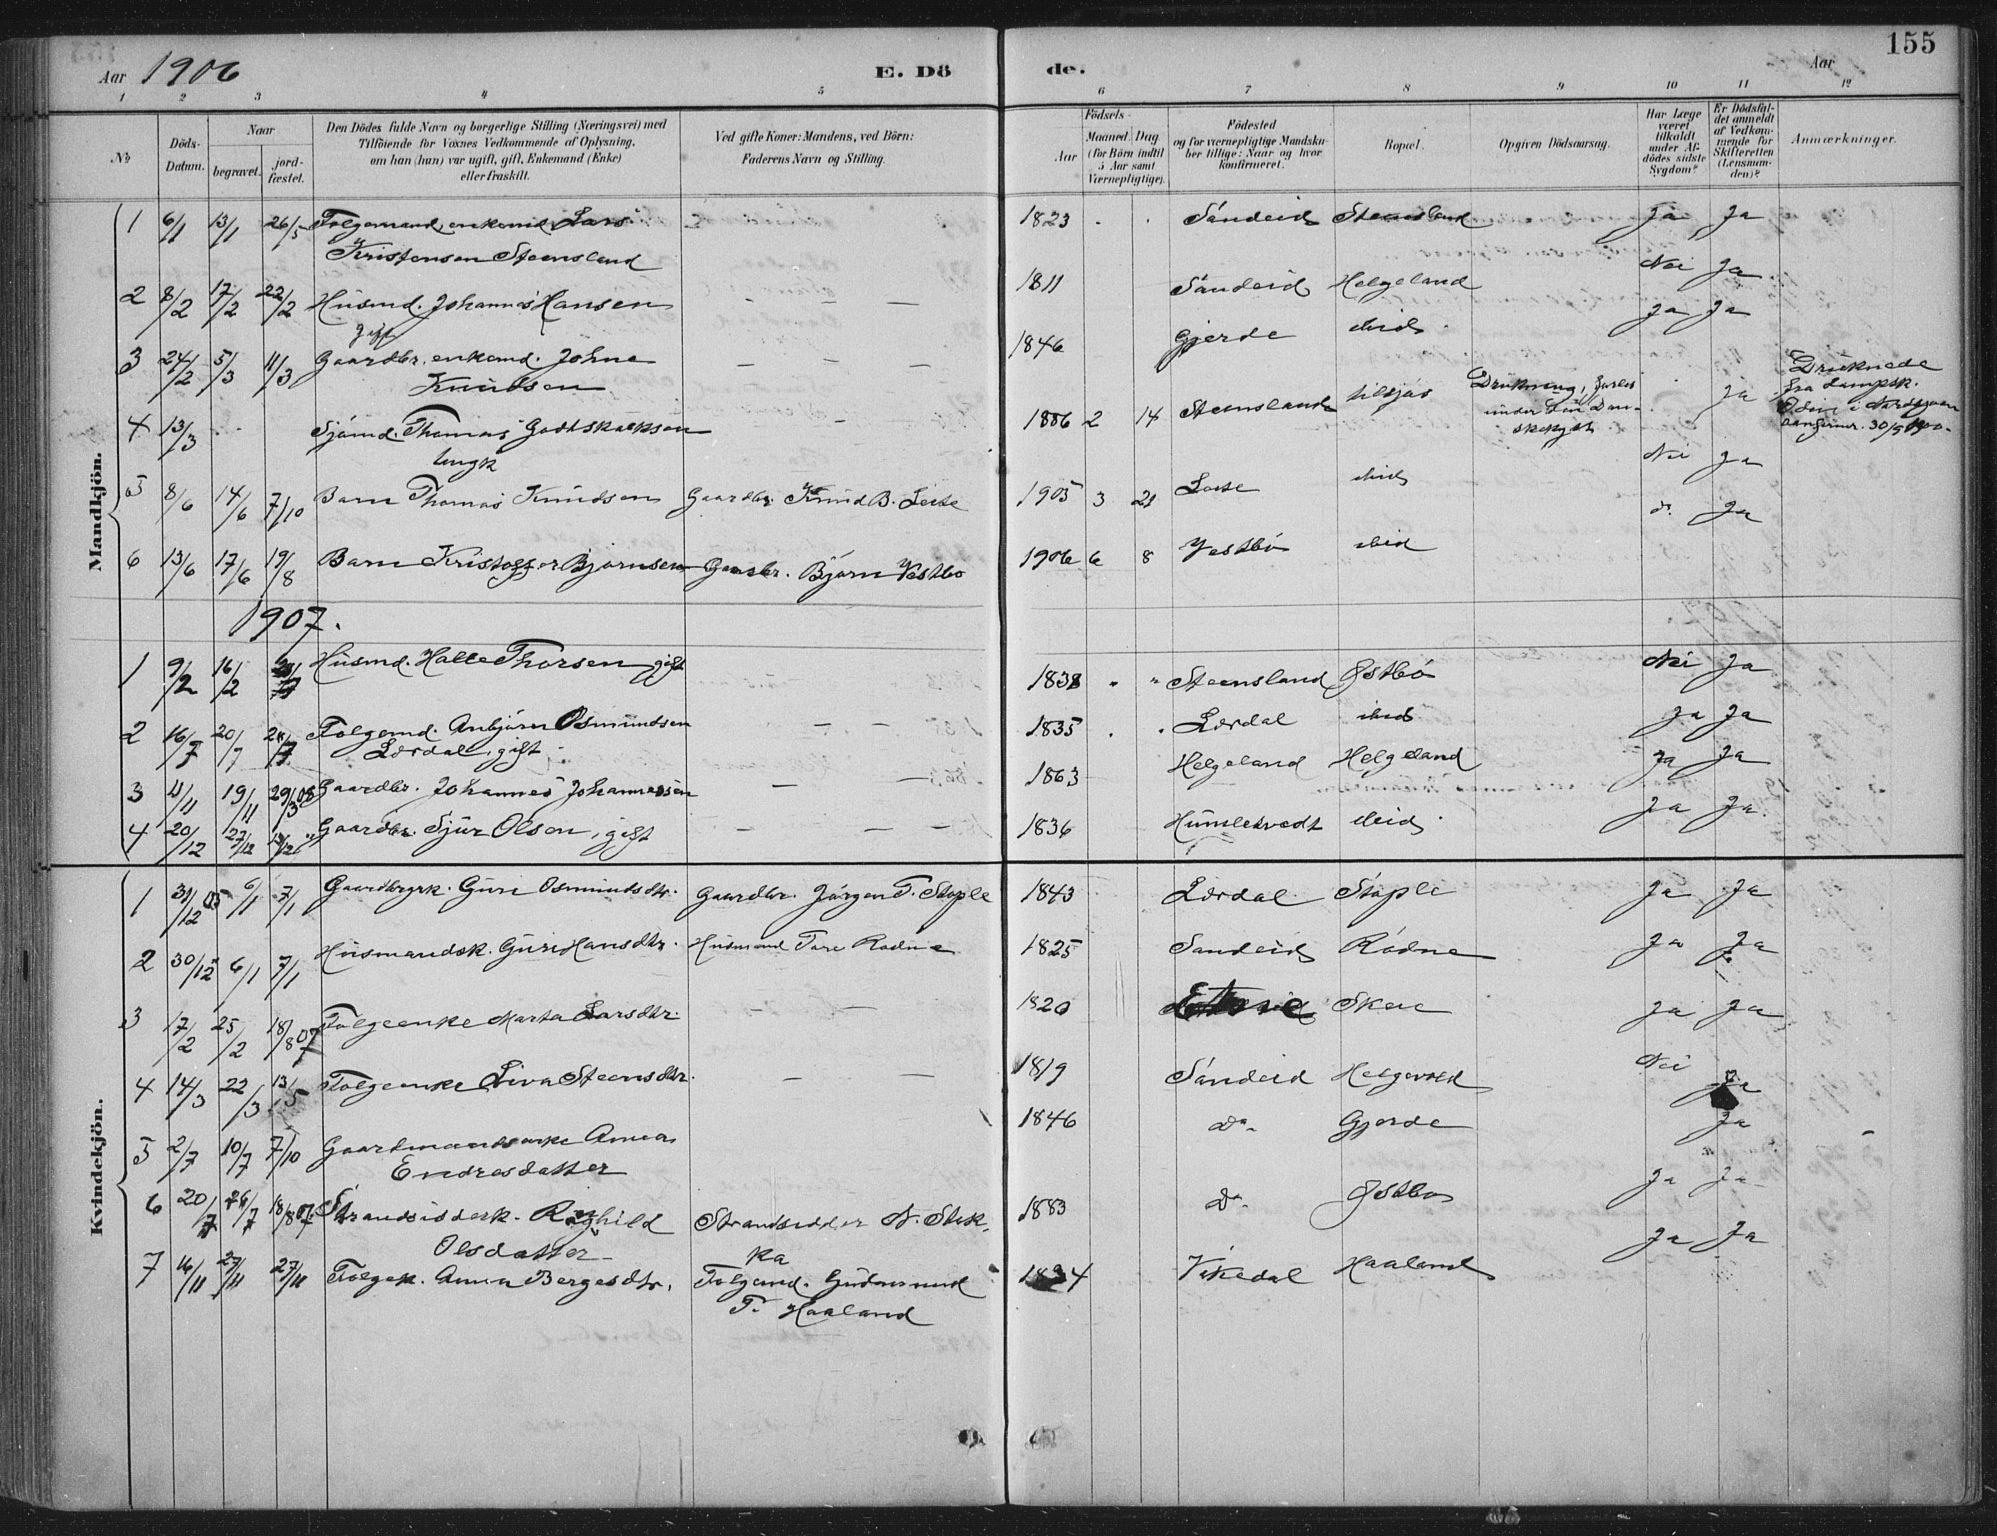 155
Aar 1906 E. Dö de. Aar
1 2 3 4 5 6 7 8 9 10 11 12
No
Döds-Datum.
Naar
begravet.
jord-fæstet.
Den Dödes fulde Navn og borgerlige Stilling (Næringsvei) med
Tilföiende for Voxnes Vedkommende af Oplysning,
om han (hun) var ugift, gift, Enkemand (Enke)
eller fraskilt.
Ved gifte Koner: Mandens, ved Börn:
Faderens Navn og Stilling.
Födsels-
Aar
Maaned Dag
(for Börn indtil
5 Aar samt
Værnepligtige).
Födested
og for værnepligtige Mandsku-
ber tillige: Naar og hvor
konfirmeret.
Bopæl.
Opgiven Dödsaarsag.
Har Læge
været
tilkaldt
under Af-
dödes sidste
Sygdom?
Er Dödsfal-
det anmeldt
af Vedkom-
mende for
Skifteretten
(Lensman-
den)?
Anmærkninger.
Mandkjön.
1 6/1 13/1 26/5 Folgemand, enkemd Lars 1823 Sandeid Steensland Ja Ja
Kristensen Steensland
2 8/2 17/2 22/2 Husmd. Johannes Hansen — — 1811 Sandeid Helgeland Nei Ja
gift
3 24/2 5/3 11/3 Gaardbr. enkemd. Johne — — 1846 Gjerde ibid. Ja Ja
Knudsen
4 13/3 Sjømd. Thomas Godtskalksen 1886 2 14 Steensland tilsjøs Drukning, Ja Druknede
ungk under Dan- fra Dampsk.
skekyst Odin i Nordsjøen
5 8/6 14/6 7/10 Barn Thomas Knudsen Gaardbr. Knud B. Leite 1905 3 21 Leite ibid Nei Ja
6 13/6 17/6 19/8 Barn Kristoffer Bjørnsen Gaardbr. Bjørn Vestbø 1906 6 8 Vestbø ibid d. Ja
1907.
1 9/2 16/2 Husmd. Halle Thorsen, gift 1838 Steensland Østbø Nei Ja
2 16/7 20/7 Folgemd. Anbjørn Osmundsen — — 1835 Lørdal ibid Ja Ja
Lørdal, gift
3 11/11 19/11 29/3 08 Gaardbr. Johannes Johannessen — — 1863 Helgeland Helgeland Ja Ja
4 20/12 27/12 Gaardbr. Sjur Olsen, gift — — 1836 Humlekvedt ibid. Ja Ja.
Kvindekjön.
1 31/12 05 6/1 7/1 Gaardbrgrk. Guri Osmundsdtr. Gaardbr. Jørgen T. Støple 1843 Lørdal. Støple Ja Ja
2 30/12 6/1 7/1 Husmandsk. Guri Hansdtr. Husmand Tore Rødne 1825 Sandeid Rødne Ja Ja
3 17/2 25/2 18/8 07 Folgeenke Marta Larsdtr. — — 1820 Etne Skeie Ja Ja
4 14/3 22/3 13/5 Folgeenke Siva Steensdtr. — — 1819 Sandeid Helgevold Nei Ja
5 2/7 10/7 7/10 Gaardmandsenke Anna 1846 Do. Gjerde Ja
Endresdatter
6 20/7 26/7 18/8 07 Strandsidderk. Ragnhild Strandsidder N. Stek- 1883 Do. Østbø Ja Ja
Olsdatter ka
7 16/11 27/11 27/11 Folgek. Anna Bergesdtr. Folgemd. Gudmund 1834 Vikedal Haaland Ja Ja
T. Haaland